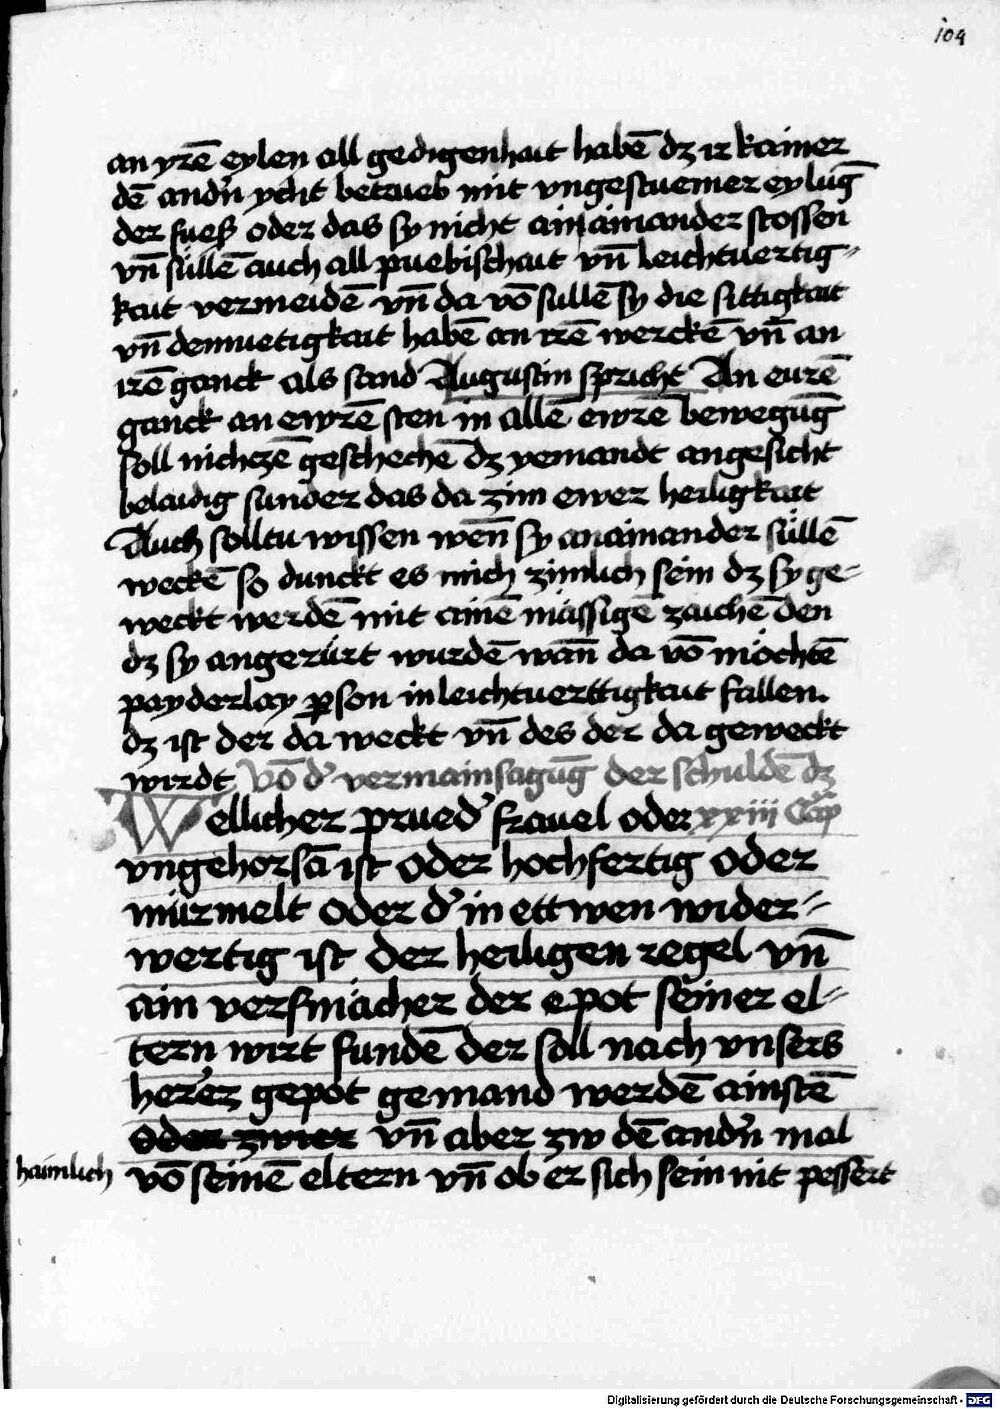 104
an yrē eylen all gedigenhait habē dz ir kainer
dē andn̄ ycht betrueb mit vngestuemer eylūg
der fueß oder das sy nicht an ainander stossen
vn̄ süllē auch all puebischait vn̄ leichtuertig-
kait vermeidē vn̄ da vō sullē sy die sittigkait
vn̄ demuetigkait habē an irē werckē vn̄ an
irē ganck als stand Augustin spricht An eurē
ganck an ewrē sten in allē ewrē bewegūg
soll nichczē geschechē dz yemandt angesicht
belaidig sunder das da zim ewer heiligkait
Auch solltu wissen wen̄ sy anainander süllē
weckē so dunckt es mich zimlich sein dz sy ge-
weckt werdē mit ainē mässigē zaichē den
dz sy angerürt wurdē wan̄ da vō möchtē
payderlay ꝑson in leichtuerttigkait fallen.
dz ist der da weckt vn̄ des der da geweckt
wirdt Vō d' vermainsagūg der schuldē dz
Wellicher prued' frauel oder xxiii Cap
vngehorsā ist oder hochfertig oder
mürmelt oder d' in ettwen wider-
wertig ist der heiligen regel vn̄
ain versmächer der epot seiner el-
tern wirt fundē der soll nach vnsers
herrez gepot gemand werdē ainstē
oder zwier vn̄ aber zw dē andn̄ mal
haimlich vō seinē eltern vn̄ ob er sich sein nit pessert
Digitalisierung gefördert durch die Deutsche Forschungsgemeinschaft - DFG